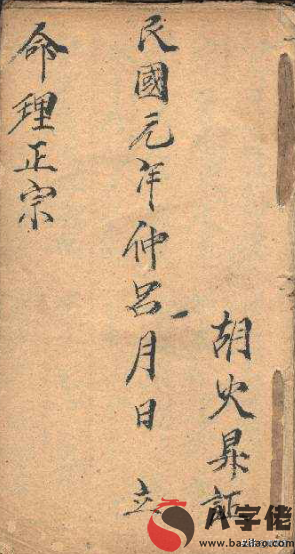 胡火昇
民國元年仲呂月日 立
命理正宗
八字佬
www.bazilao.com